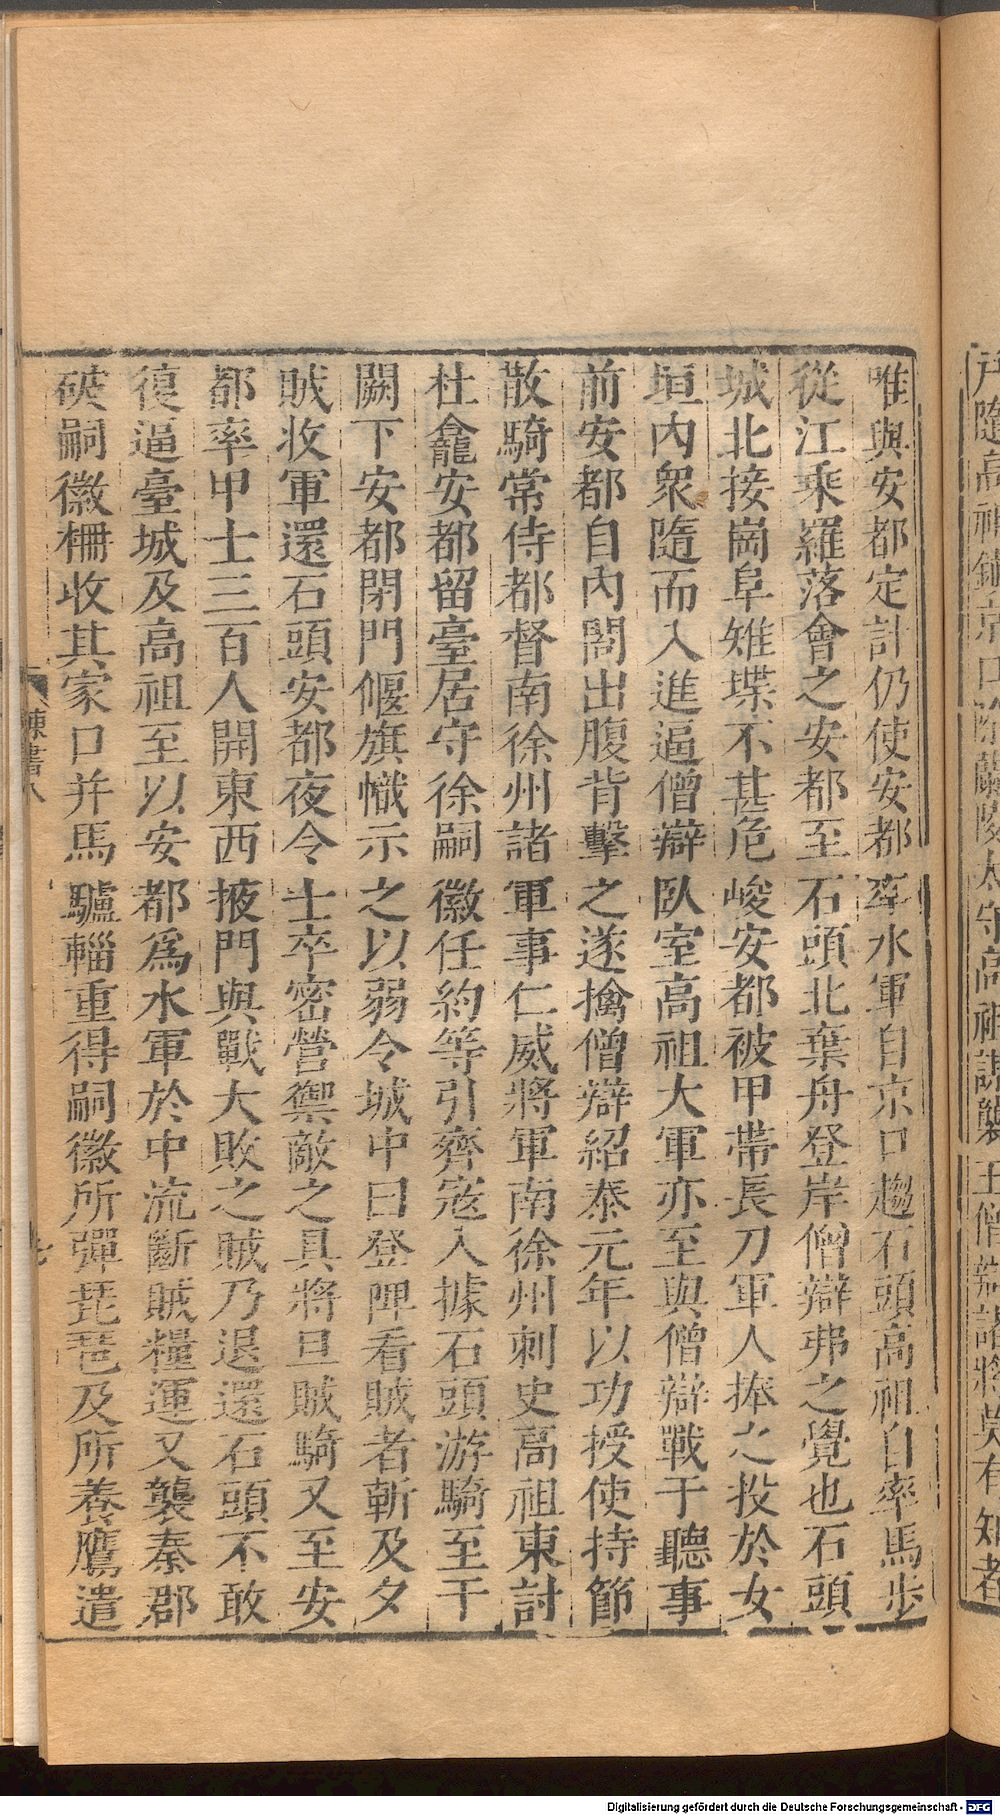 戶隨高祖鎮京口除蘭陵太守高祖謀襲王僧辯諸將莫有知者
唯與安都定計仍使安都率水軍自京口趨石頭高祖自率馬步
從江乘羅落會之安都至石頭北棄舟登岸僧辯弗之覺也石頭
城北接崗阜雉堞不甚危峻安都被甲帶長刀軍人捧之投於女
垣內衆隨而入進逼僧辯臥室高祖大軍亦至與僧辯戰于聽事
前安都自內閤出腹背擊之遂擒僧辯紹泰元年以功授使持節
散騎常侍都督南徐州諸軍事仁威將軍南徐州刺史高祖東討
杜龕安都留臺居守徐嗣徽任約等引齊寇入據石頭游騎至于
闕下安都閉門偃旗幟示之以弱令城中曰登陴看賊者斬及夕
賊收軍還石頭安都夜令士卒密營禦敵之具將旦賊騎又至安
都率甲士三百人開東西掖門與戰大敗之賊乃退還石頭不敢
復逼臺城及高祖至以安都爲水軍於中流斷賊糧運又襲秦郡
破嗣徽柵收其家口并馬驢輜重得嗣徽所彈琵琶及所養鷹遣
陳書八
七
Digitalisierung gefördert durch die Deutsche Forschungsgemeinschaft - DFG